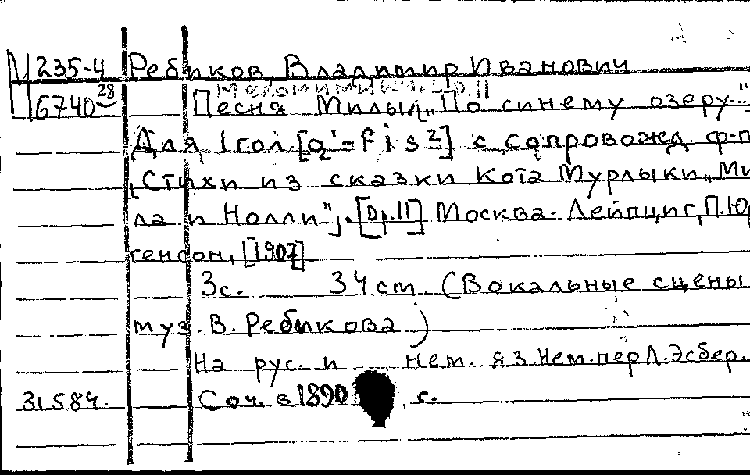 235-4 Ребиков, Владимир Иванович
6740 28 Песня Милы „По синему озеру..."
Для 1 гол [a'=fis²] с сопровожд ф-п
„Стихи из сказки Кота Мурлыки „Ми
ла и Нолли", [Op.11] Москва-Лейпциг, П.Юр
генсон, [1907]
3с. 34 см. (Вокальные сцены
муз. В. Ребикова)
На рус. и нем. яз. Нем. пер Л. Эсбер.
31584. Соч. в 1890 г.